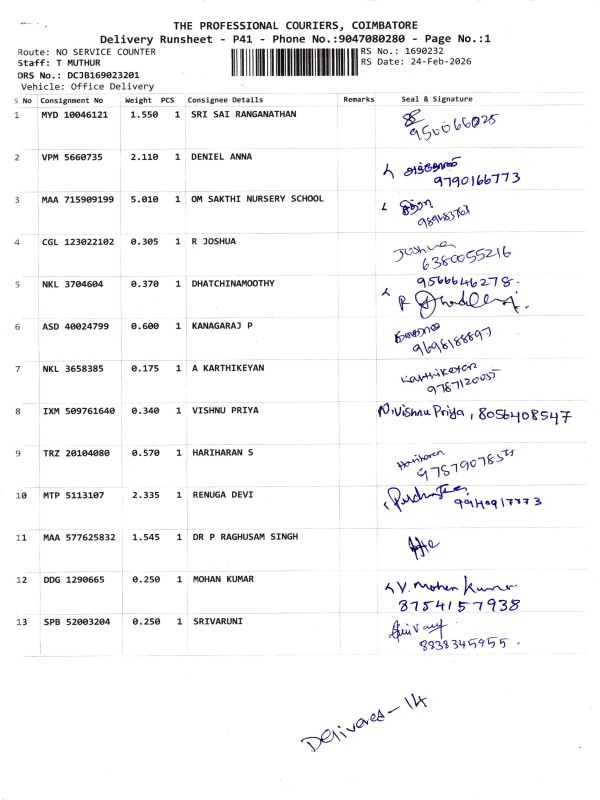 THE PROFESSIONAL COURIERS, COIMBATORE
Delivery Runsheet - P41 - Phone No.:9047080280 - Page No.:1
Route: NO SERVICE COUNTER RS No.: 1690232
Staff: T MUTHUR RS Date: 24-Feb-2026
DRS No.: DCJB169023201
Vehicle: Office Delivery
S No Consignment No Weight PCS Consignee Details Remarks Seal & Signature
1 MYD 10046121 1.550 1 SRI SAI RANGANATHAN
2 VPM 5660735 2.110 1 DENIEL ANNA
9790166773
3 MAA 715909199 5.010 1 OM SAKTHI NURSERY SCHOOL
4 CGL 123022102 0.305 1 R JOSHUA Joshua
6380055216
5 NKL 3704604 0.370 1 DHATCHINAMOOTHY 9566646278.
6 ASD 40024799 0.600 1 KANAGARAJ P
9698188897
7 NKL 3658385 0.175 1 A KARTHIKEYAN Karthikeyan
8 IXM 509761640 0.340 1 VISHNU PRIYA N.Vishnu Priya, 8056408547
9 TRZ 20104080 0.570 1 HARIHARAN S Hariharan
10 MTP 5113107 2.335 1 RENUGA DEVI
9940917773
11 MAA 577625832 1.545 1 DR P RAGHUSAM SINGH
12 DDG 1290665 0.250 1 MOHAN KUMAR V. Mohan Kumar
8754157938
13 SPB 52003204 0.250 1 SRIVARUNI
8838345955.
Delivered - 14